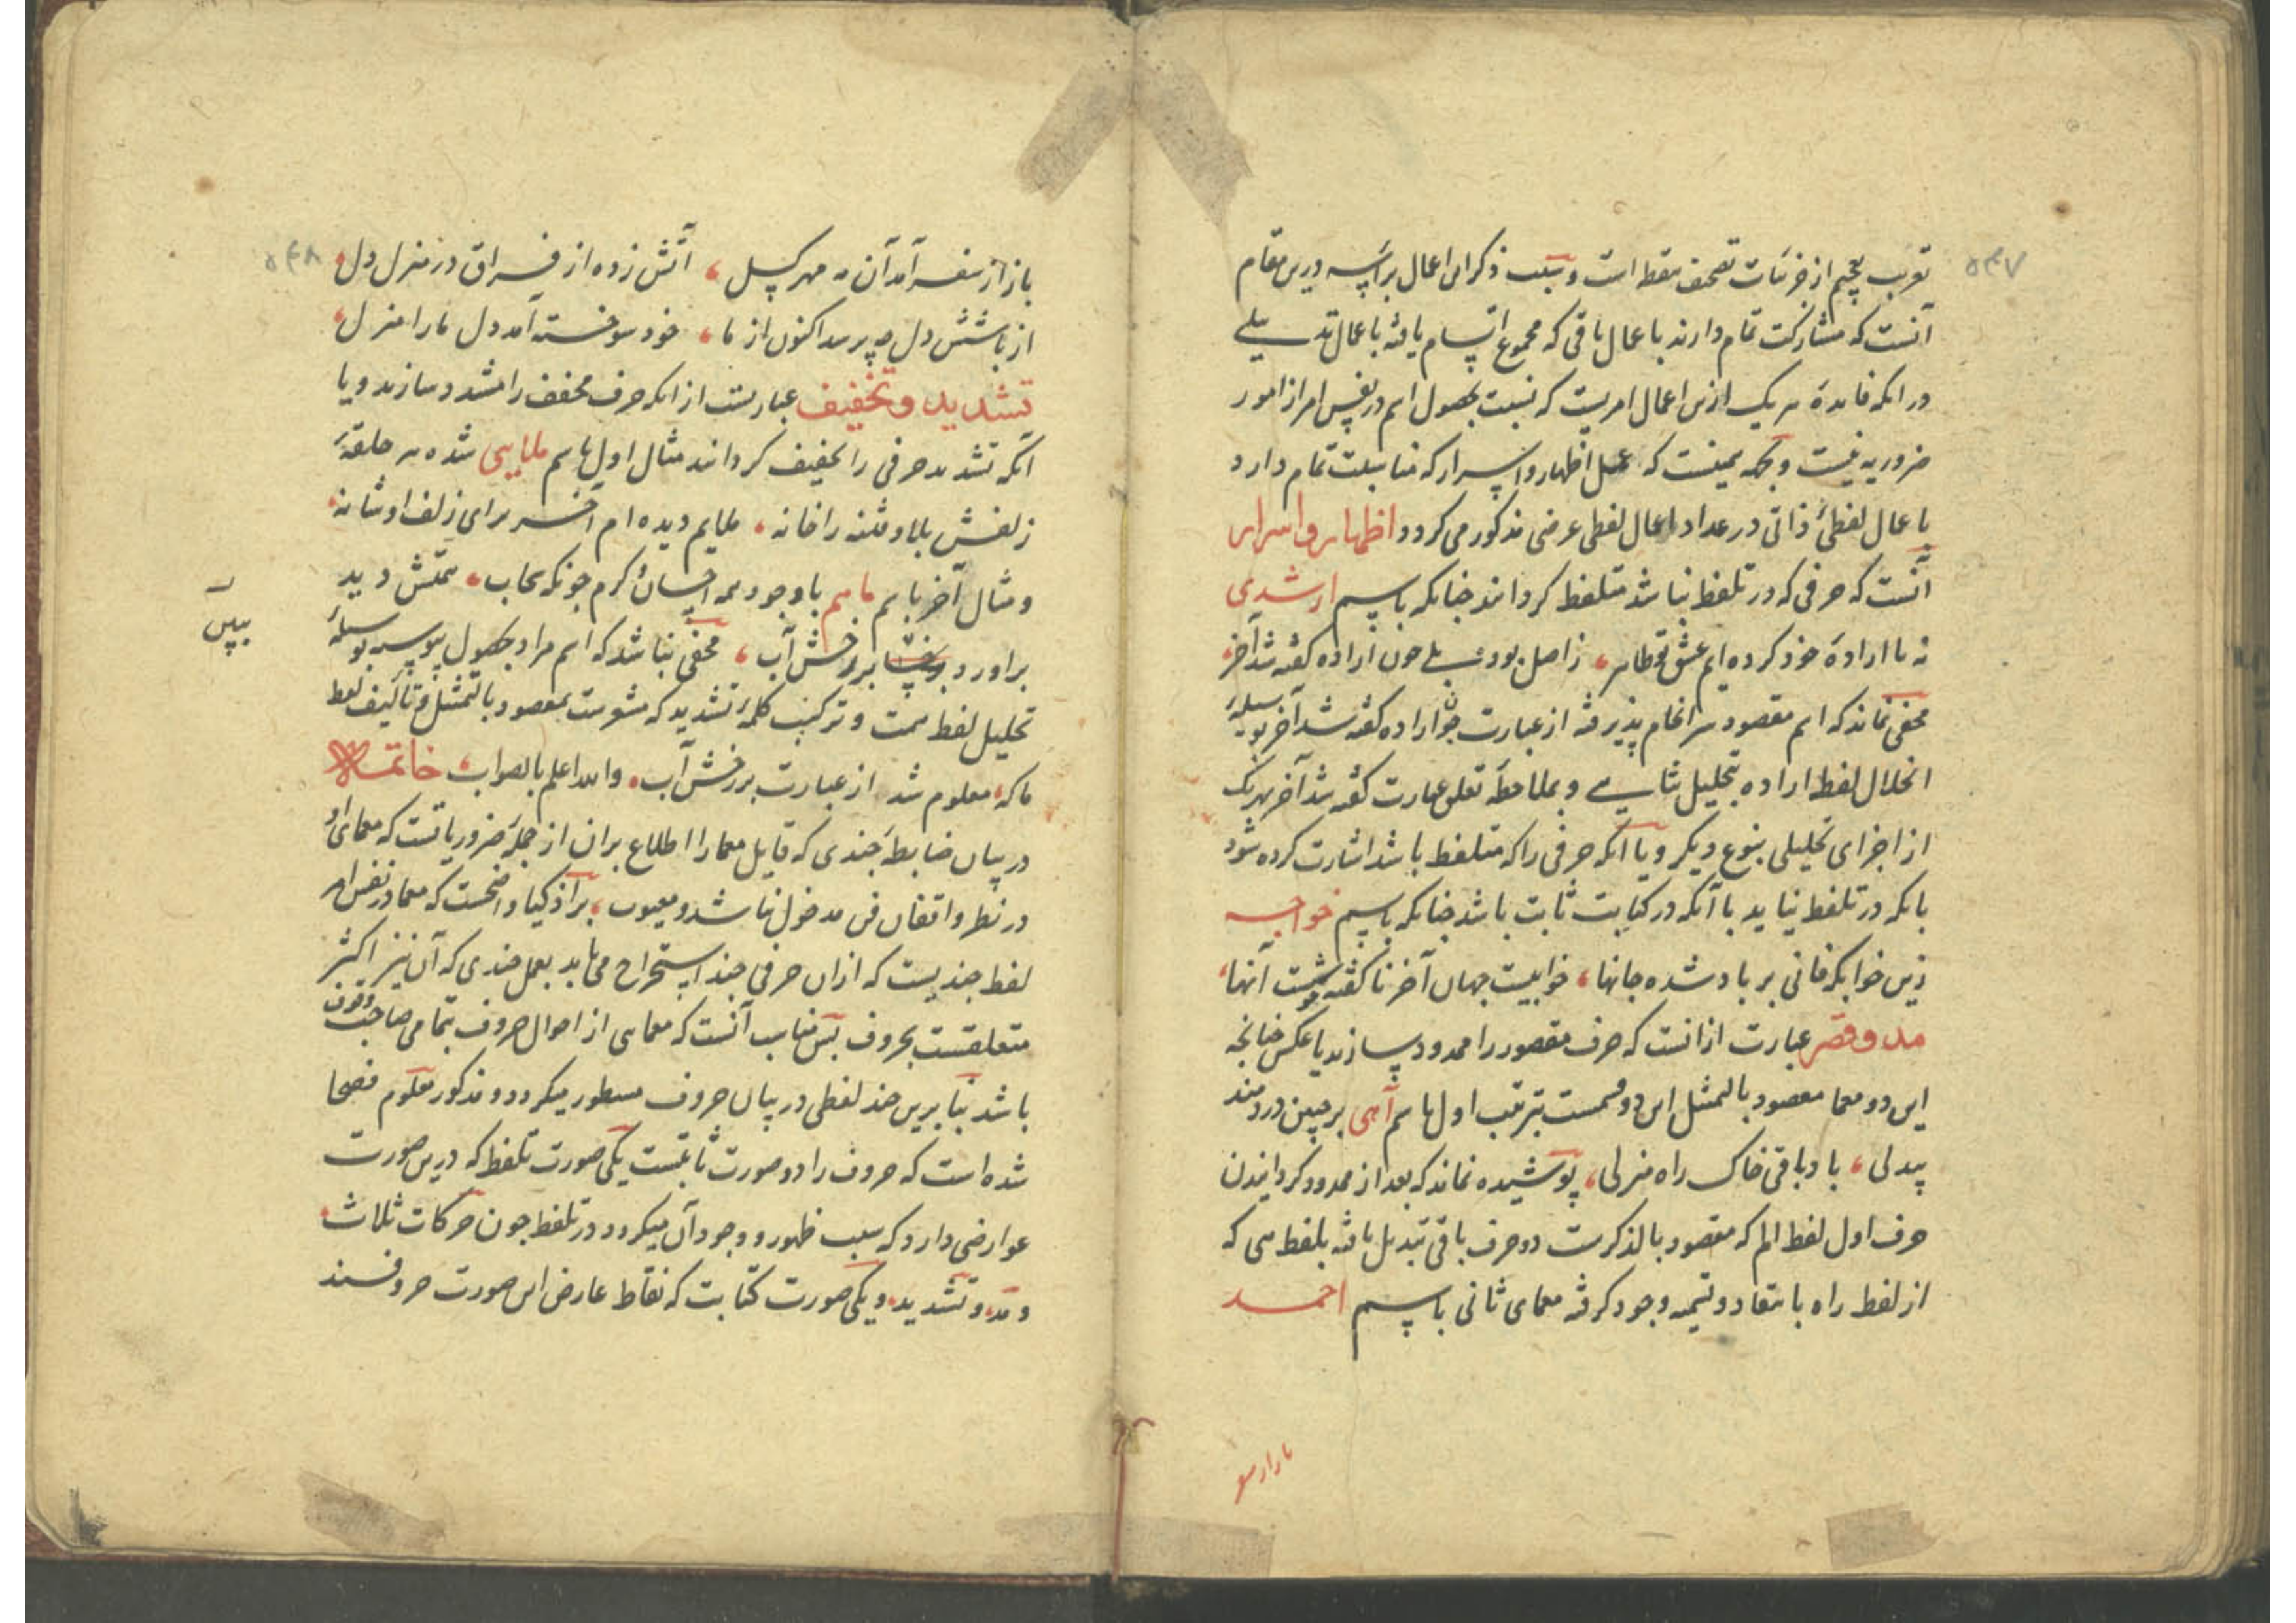 ۵۴۷
تعریب بچیم از جزئیات تصحیف مقط است و سبب ذکر این اعمال براسه درین مقام
آنست که مشارکت تمام دارند باعمال باقی که مجموع اتسام یافته باعمال تذییلی
در انکه فایده هر یک ازین اعمال امریست که نسبت بحصول اسم در نفس امر از امور
ضروریه نیست و بجهه همینست که عمل اظهار و اسرار که مناسبت تمام دارد
باعمال لفظی ذاتی در عداد اعمال لفظی عرضی مذکور می کردد اظهار و اسرار
آنست که حرفی که در تلفظ نباشد متلفظ کردانند چنانکه باسم ارشدی
نه با ارادهٔ خود کرده ایم عشق تو ظاهر، ز اصل بود بلی چون اراده کفته شد آخر،
مخفی نماند که اسم مقصود سرانجام پذیرفته از عبارت چون اراده کفته شد آخر بوسیلهٔ
انحلال لفظ اراده بتحلیل ثنایی و بملاحظه تعلق عبارت کفته شد آخر بهر یک
از اجزای تحلیلی بنوع دیکر و یا آنکه حرفی را که متلفظ باشد اشارت کرده شود
بانکه در تلفظ نیاید با آنکه در کتابت ثابت باشد چنانکه باسم خواجه
زین خوابکه فانی بر باد شده جانها، خوابیست جهان آخر ناکفته خوشست آنها،
مد و قصر عبارت از انست که حرف مقصور را ممدود سازند یا عکس چنانچه
این دو معما مقصود بالتمثیل این دو قسمست بترتیب اول باسم آهی بر جبین دردمند
بیدلی، باد باقی خاک راه منزلی، پوشیده نماند که بعد از ممدود کردانیدن
حرف اول لفظ الم که مقصود بالذکرست دو حرف باقی تبدیل یافته بلفظ هی که
از لفظ راه بانتقاد و تیمه وجود کرفته معمای ثانی باسم احمد
۵۴۸
باز از سفر آمد آن مه مهر کسل، آتش زده از فراق در منزل دل،
از باشش دل چه پرسد اکنون از ما، خود سوخته آمد دل ما را منزل،
تشدید و تخفیف عبارتست از انکه حرف مخفف را مشدد سازند و یا
آنکه تشدید حرفی را تخفیف کردانند مثال اول باسم ملایی شده هر حلقهٔ
زلفش بلا و فتنه را خانه، ملایم دیده ام آخر برای زلف او شانه،
و مثال آخر باسم ماهم با وجود همه احسان و کرم چونکه سحاب، همتش دید
براورد بر رخش آب، مخفی نباشد که اسم مراد بحصول پیوسته بوسیلهٔ
تحلیل لفظ همت و ترکیب کلمهٔ تشدید که مشعرست بمقصود بالتمثیل و تألیف لفظ
ما که معلوم شد از عبارت بر رخش آب، والله اعلم بالصواب، خاتمه
در بیان ضابطهٔ چندی که قایل معما را اطلاع بران از جمله ضروریاتست که معمای او
در نظر واقفان فن مدخول نباشد و معیوب، بر اذکیا واضحست که معما در نفس امر
لفظ چندیست که ازان حرفی چند استخراج می یابد بعمل چندی که آن نیز اکثر
متعلقست بحروف پس مناسب آنست که معمایی از احوال حروف بتمامی صاحب وقوف
باشد بنابرین چند لفظی در بیان حروف مسطور میکردد و مذکور معلوم فصحا
شده است که حروف را دو صورت ثابتست یکی صورت تلفظ که درین صورت
عوارضی دارد که سبب ظهور و وجود آن میکردد در تلفظ چون حرکات ثلاث
و مد، و تشدید، و یکی صورت کتابت که نقاط عارض این صورت حروفند